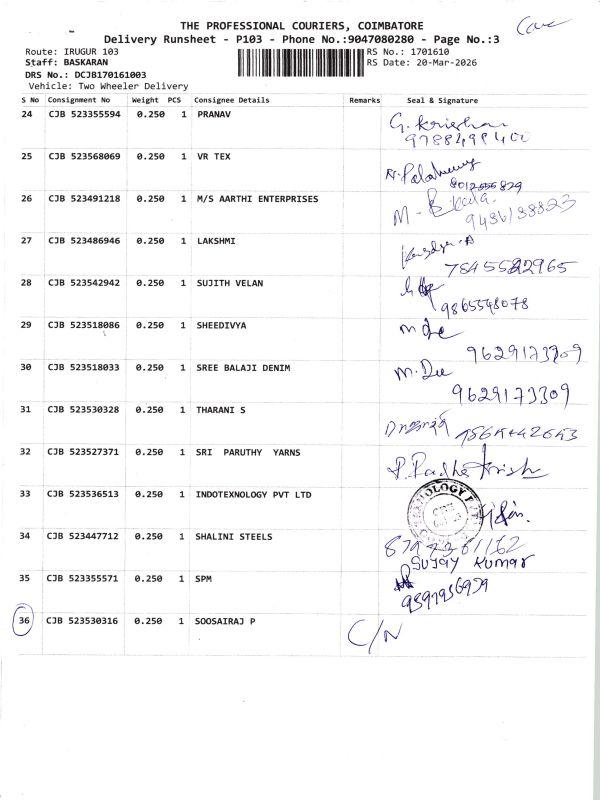 Care
THE PROFESSIONAL COURIERS, COIMBATORE
Delivery Runsheet - P103 - Phone No.:9047080280 - Page No.:3
Route: IRUGUR 103
RS No.: 1701610
Staff: BASKARAN
RS Date: 20-Mar-2026
DRS No.: DCJB170161003
Vehicle: Two Wheeler Delivery
S No Consignment No Weight PCS Consignee Details Remarks Seal & Signature
24 CJB 523355594 0.250 1 PRANAV G. Krishnan
9788498400
25 CJB 523568069 0.250 1 VR TEX
26 CJB 523491218 0.250 1 M/S AARTHI ENTERPRISES M-
27 CJB 523486946 0.250 1 LAKSHMI
28 CJB 523542942 0.250 1 SUJITH VELAN
9865548078
29 CJB 523518086 0.250 1 SHEEDIVYA
9629173309
30 CJB 523518033 0.250 1 SREE BALAJI DENIM M. Dee
9629173309
31 CJB 523530328 0.250 1 THARANI S
32 CJB 523527371 0.250 1 SRI PARUTHY YARNS P. Radha Krish
33 CJB 523536513 0.250 1 INDOTEXNOLOGY PVT LTD
34 CJB 523447712 0.250 1 SHALINI STEELS
Sujay Kumar
35 CJB 523355571 0.250 1 SPM
36 CJB 523530316 0.250 1 SOOSAIRAJ P C/N